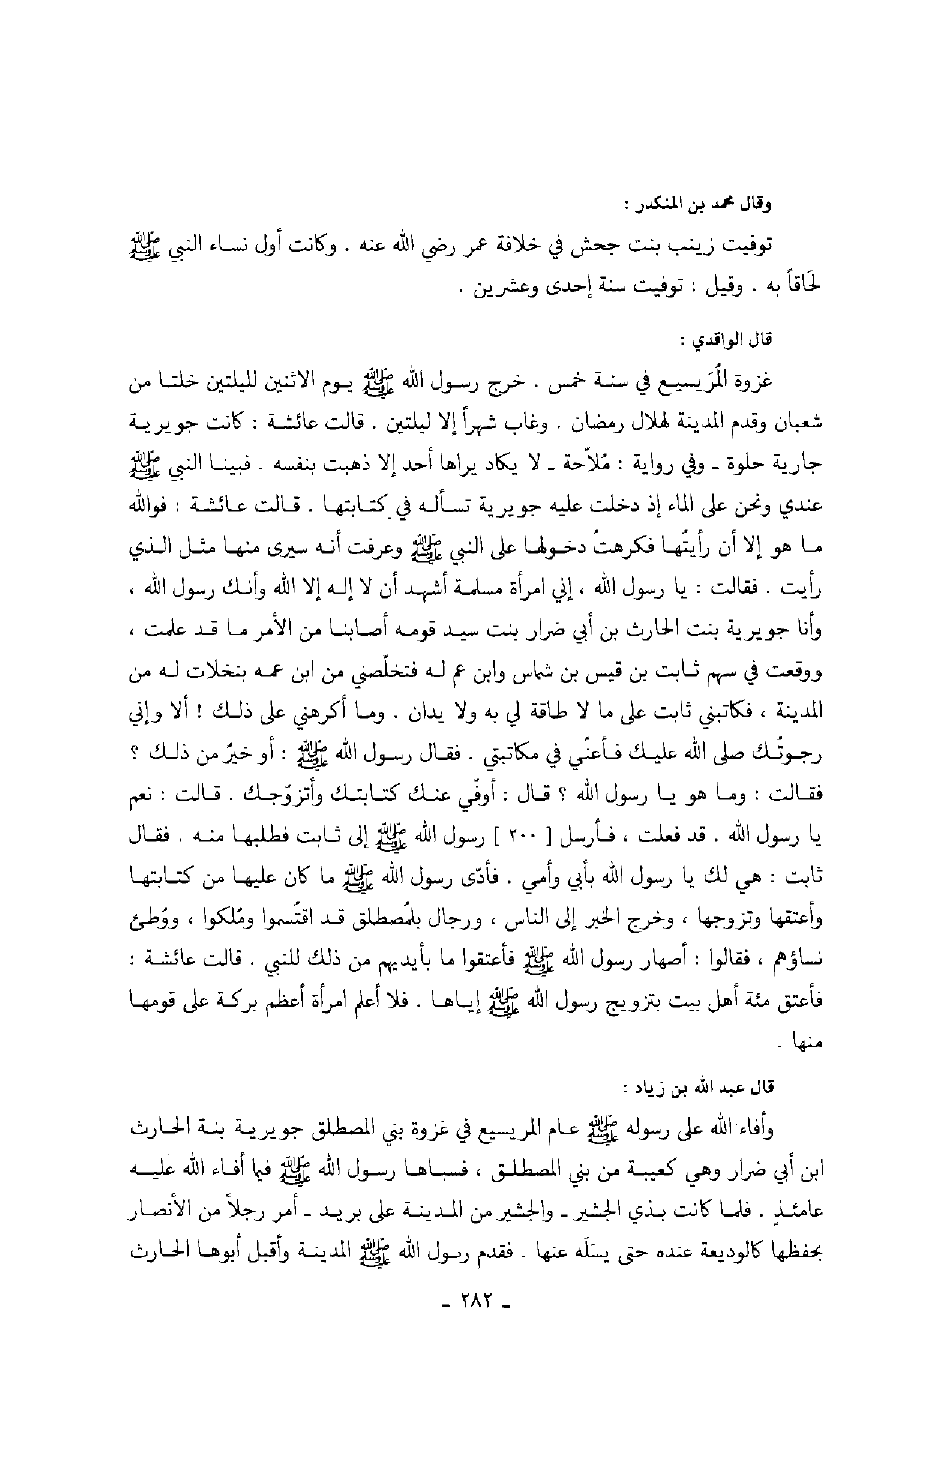 وقال محمد بن المنكدر :
توفيت زينب بنت جحش في خلافة عمر رضي الله عنه . وكانت أول نساء النبي ﷺ
لحَاقاً به . وقيل : توفيت سنة إحدى وعشرين .
قال الواقدي :
غزوة المُرَيسيع في سنة خمس . خرج رسول الله ﷺ يوم الاثنين لليلتين خلتا من
شعبان وقدم المدينة لهلال رمضان . وغاب شهراً إلا ليلتين . قالت عائشة : كانت جويرية
جارية حلوة ـ وفي رواية : مُلاّحة ـ لا يكاد يراها أحد إلا ذهبت بنفسه . فبينا النبي ﷺ
عندي ونحن على الماء إذ دخلت عليه جويرية تسأله في كتابتها . قالت عائشة : فوالله
ما هو إلا أن رأيتُها فكرهتُ دخولها على النبي ﷺ وعرفت أنه سيرى منها مثل الذي
رأيت . فقالت : يا رسول الله ، إني امرأة مسلمة أشهد أن لا إله إلا الله وأنك رسول الله ،
وأنا جويرية بنت الحارث بن أبي ضرار بنت سيد قومه أصابنا من الأمر ما قد علمت ،
ووقعت في سهم ثابت بن قيس بن شماس وابن عم له فتخلّصني من ابن عمه بنخلات له من
المدينة ، فكاتبني ثابت على ما لا طاقة لي به ولا يدان . وما أكرهني على ذلك ! ألا وإني
رجوتُك صلى الله عليك فأعنّي في مكاتبتي . فقال رسول الله ﷺ : أو خيرٌ من ذلك ؟
فقالت : وما هو يا رسول الله ؟ قال : أوفّي عنك كتابتك وأتزوّجك . قالت : نعم
يا رسول الله . قد فعلت ، فأرسل [ ٢٠٠ ] رسول الله ﷺ إلى ثابت فطلبها منه . فقال
ثابت : هي لك يا رسول الله بأبي وأمي . فأدّى رسول الله ﷺ ما كان عليها من كتابتها
وأعتقها وتزوجها ، وخرج الخبر إلى الناس ، ورجال بلمُصطلق قد اقتُسموا ومُلكوا ، ووُطئ
نساؤهم ، فقالوا : أصهار رسول الله ﷺ فأعتقوا ما بأيديهم من ذلك للنبي . قالت عائشة :
فأعتق مئة أهل بيت بتزويج رسول الله ﷺ إياها . فلا أعلم امرأة أعظم بركة على قومها
منها .
قال عبد الله بن زياد :
وأفاء الله على رسوله ﷺ عام المريسيع في غزوة بني المصطلق جويرية بنة الحارث
ابن أبي ضرار وهي كعيبة من بني المصطلق ، فسباها رسول الله ﷺ فيما أفاء الله عليه
عامئذٍ . فلما كانت بذي الجشير ـ والجشير من المدينة على بريد ـ أمر رجلاً من الأنصار
بحفظها كالوديعة عنده حتى يسَلَه عنها . فقدم رسول الله ﷺ المدينة وأقبل أبوها الحارث
ـ ٢٨٢ ـ